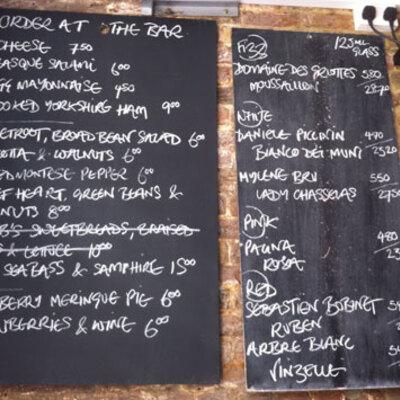 ORDER AT THE BAR
CHEESE 7.50
ASQUE SALAMI 6.00
MAYONNAISE 4.50
OKED YORKSHIRE HAM 9.00
ETROOT, BROAD BEAN SALAD 6.00
OTTA & WALNUTS 6.00
EDMONTESE PEPPER 6.00
T HEART, GREEN BEANS &
NUTS 8.00
B'S SWEETBREADS, BRAISED
S & LETTUCE 10.00
SEABASS & SAMPHIRE 15.00
BERRY MERINGUE PIE 6.00
BERRIES & WINE 6.00
FIZZ 125ML GLASS
DOMAINE DES GRIOTTES 5.80
MOUSSAILLON 28.70
WHITE
DANIELE PICCININ 4.70
BIANCO DEI MUNI 23.20
MYLENE BRU 5.50
LADY CHASSELAS 27.50
PINK
4.80
ROSA 23
RED
SEBASTIEN BOBINET
RUBEN
ARBRE BLANC
VINZELLE